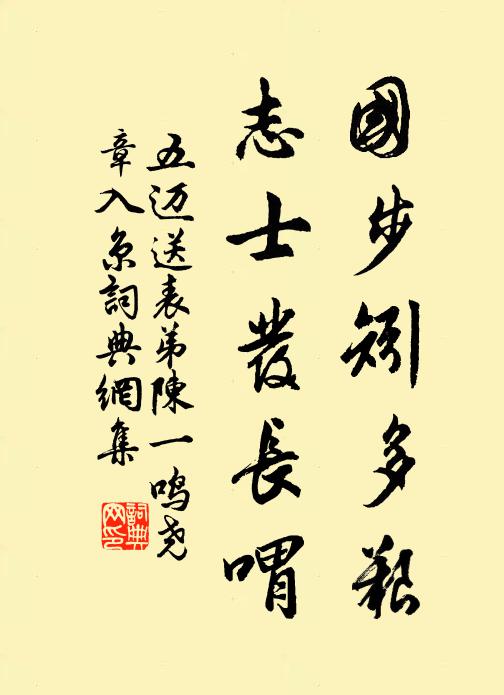 國步矧多艱
志士發長喟
五迈送表弟陳一鳴尧
章入京詞典網集
詞典
网印